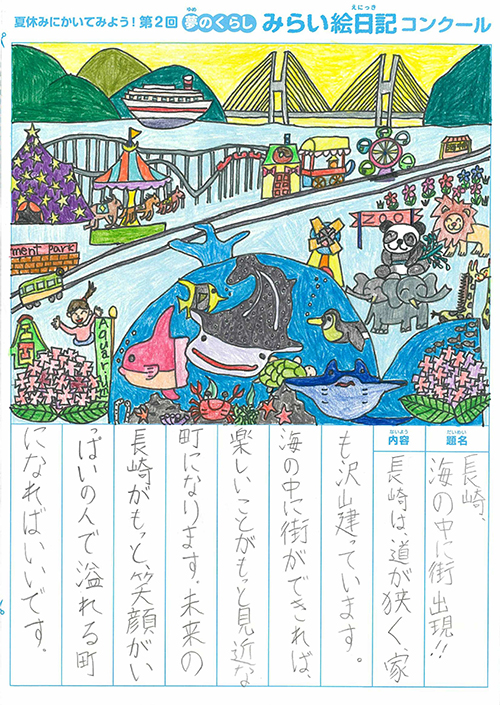 夏休みにかいてみよう!第2回 夢のくらし みらい絵日記コンクール
ゆめ
えにっき
ZOO
ment Park
Aquari
だいめい
題名
長崎、
海の中に街出現!!
ないよう
内容
長崎は、道が狭く、家
も沢山建っています。
海の中に街ができれば、
楽しいことがもっと見近な
町になります。未来の
長崎がもっと、笑顔がい
っぱいの人で溢れる町
になればいいです。